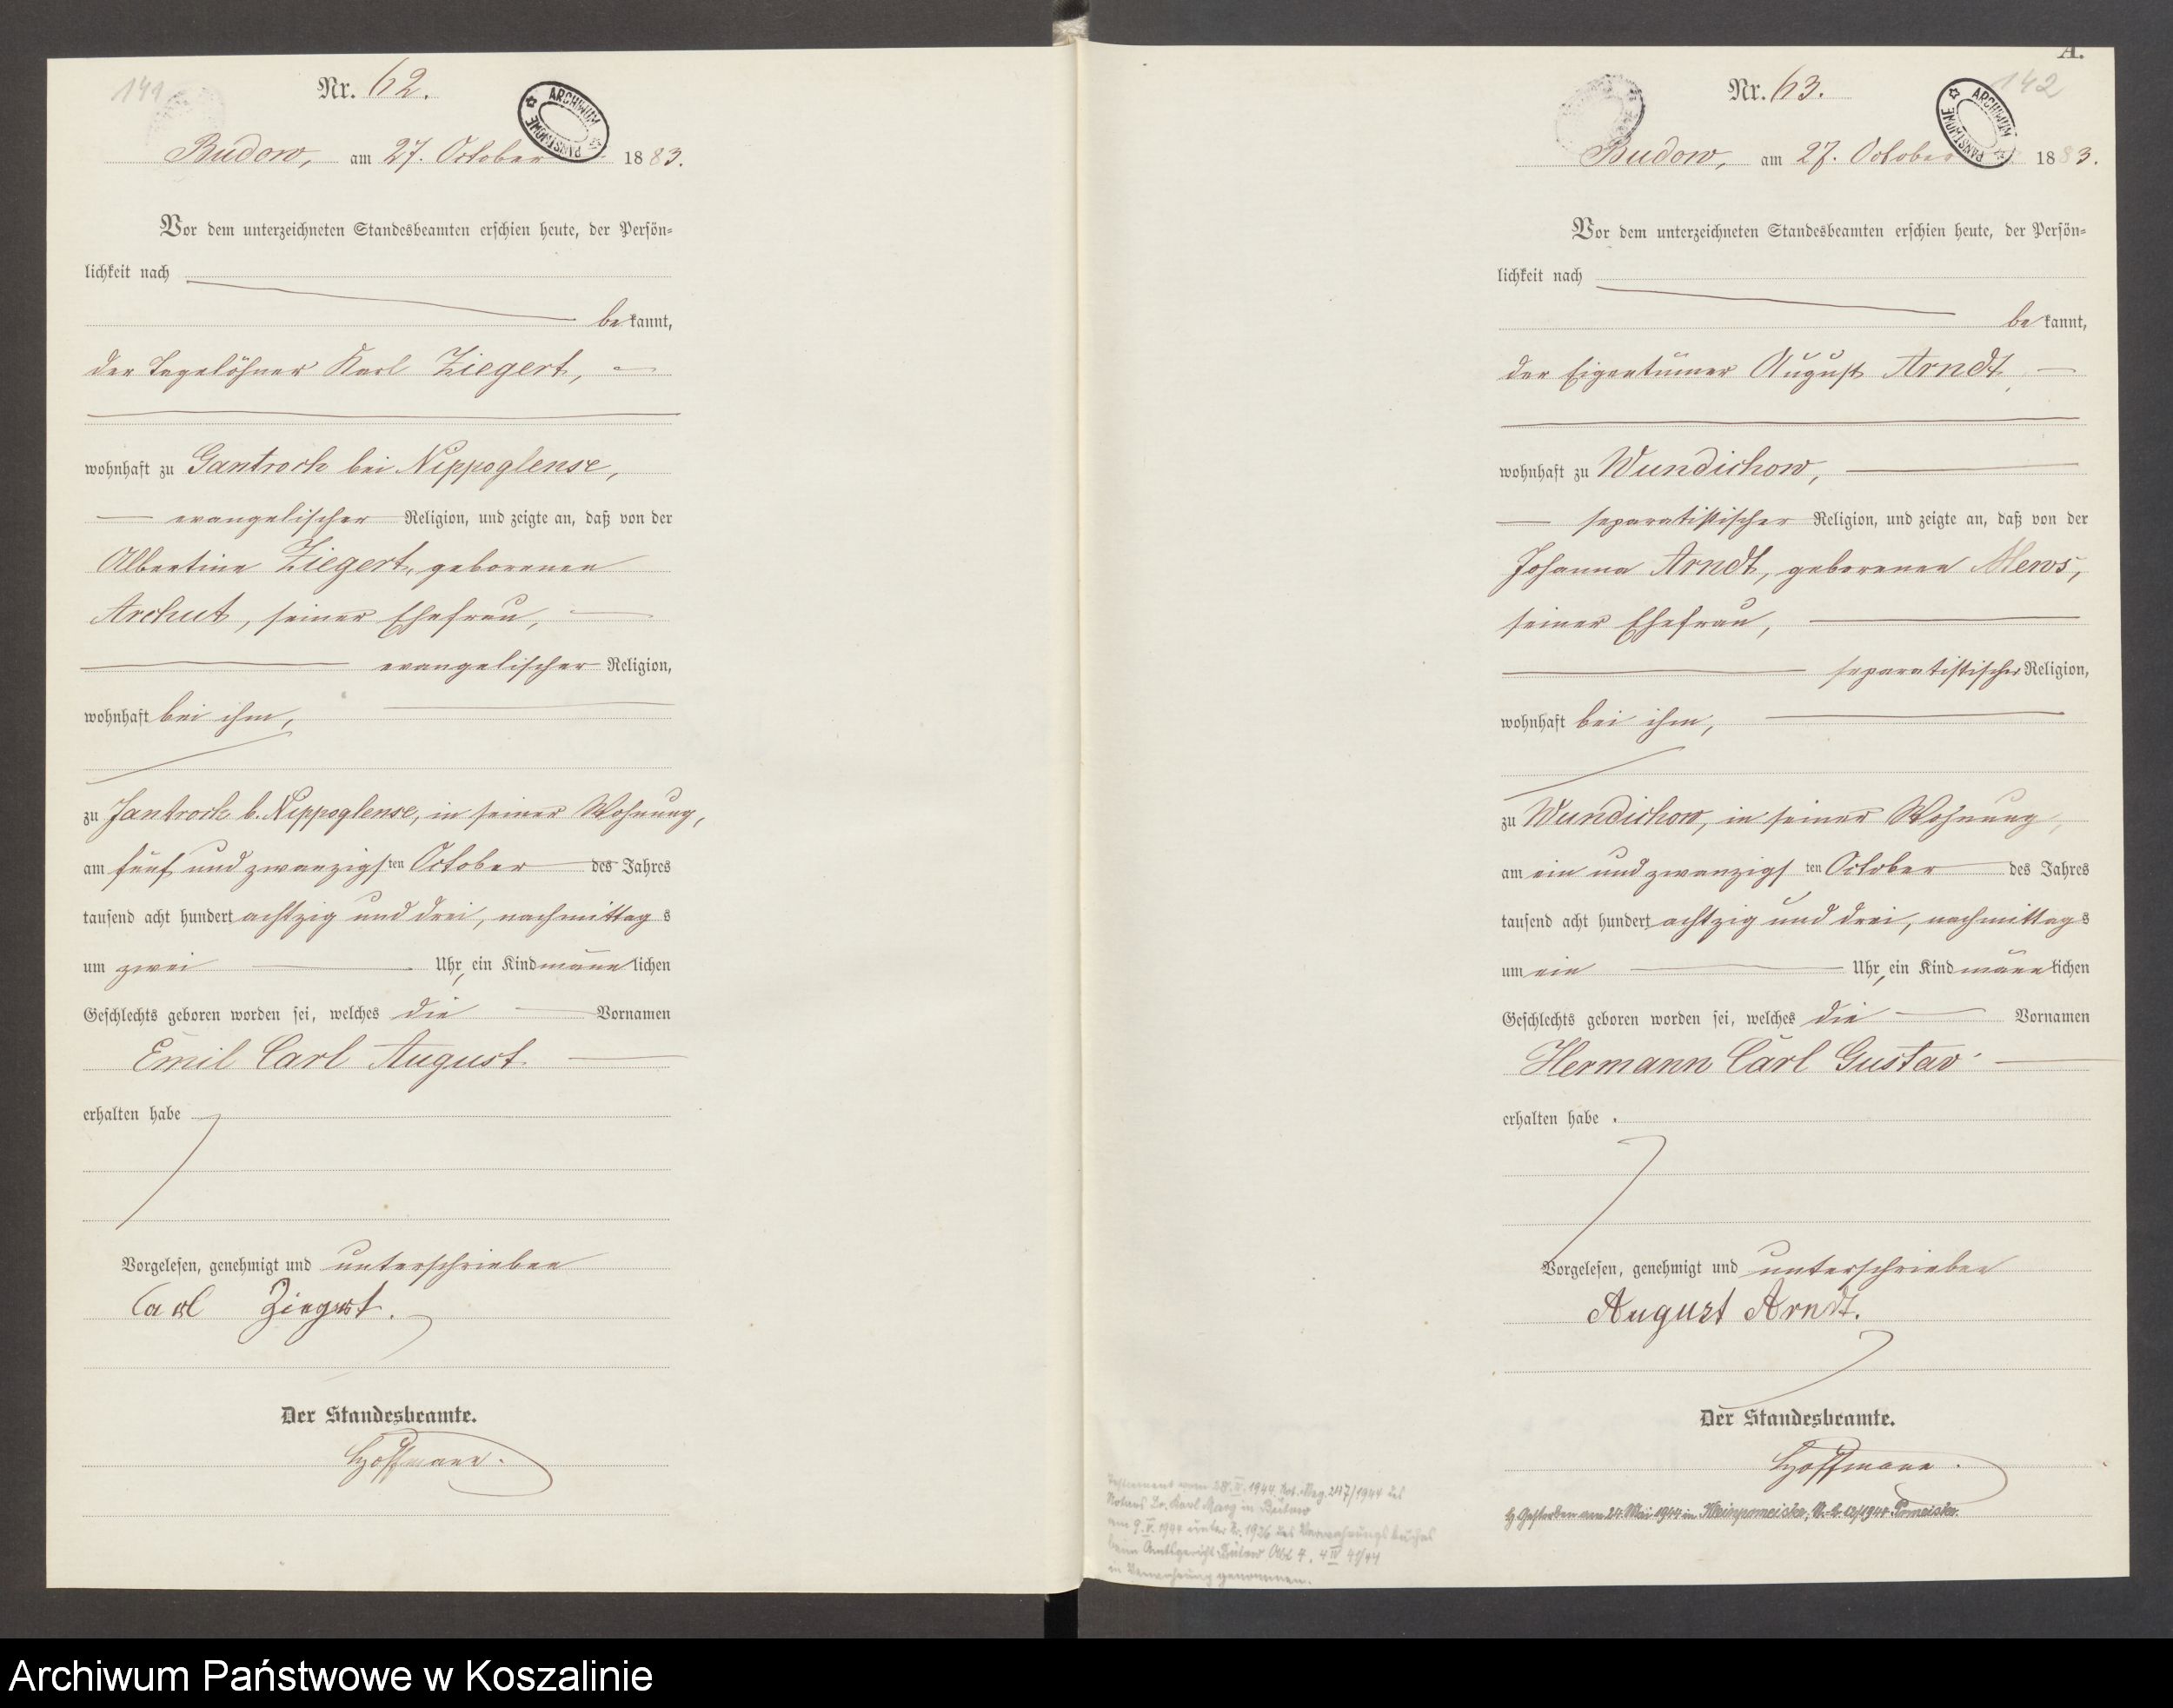 141
Nr. 62.
ARCHIWUM PAŃSTWOWE
Budow, am 27. October 1883.
Vor dem unterzeichneten Standesbeamten erschien heute, der Persön-
lichkeit nach
bekannt,
der Tagelöhner Karl Ziegert,
wohnhaft zu Gantrock bei Nippoglense,
evangelischer Religion, und zeigte an, daß von der
Albertine Ziegert, geborenen
Archut, seiner Ehefrau,
evangelischer Religion,
wohnhaft bei ihm,
zu Jantrock b. Nippoglense, in seiner Wohnung,
am fünf und zwanzigsten October des Jahres
tausend acht hundert achtzig und drei, nachmittags
um zwei Uhr, ein Kind männlichen
Geschlechts geboren worden sei, welches die Vornamen
Emil Carl August
erhalten habe
Vorgelesen, genehmigt und unterschrieben
Carl Ziegert.
Der Standesbeamte.
Hoffmann.
A.
142
Nr. 63.
ARCHIWUM PAŃSTWOWE
Budow, am 27. October 1883.
Vor dem unterzeichneten Standesbeamten erschien heute, der Persön-
lichkeit nach
bekannt,
der Eigentümer August Arndt
wohnhaft zu Wundichow,
separatistischer Religion, und zeigte an, daß von der
Johanna Arndt, geborenen Mews,
seiner Ehefrau,
separatistischer Religion,
wohnhaft bei ihm,
zu Wundichow, in seiner Wohnung,
am ein und zwanzigsten October des Jahres
tausend acht hundert achtzig und drei, nachmittags
um ein Uhr, ein Kind männlichen
Geschlechts geboren worden sei, welches die Vornamen
Hermann Carl Gustav
erhalten habe.
Vorgelesen, genehmigt und unterschrieben
August Arndt.
Der Standesbeamte.
Hoffmann.
Gestorben am 24. Mai 1944 in Kleinpomeiske, 1944 Pomeiske.
Testament vom 28. IV. 1944 Not. Reg. 247/1944 des
Notars Dr. Karl Marg in Bütow
am 9. V. 1944 unter 1926 des Verwahrungsbuches
beim Amtsgericht Bütow Abt 4, 4 IV 41/44
in Verwahrung genommen.
Archiwum Państwowe w Koszalinie